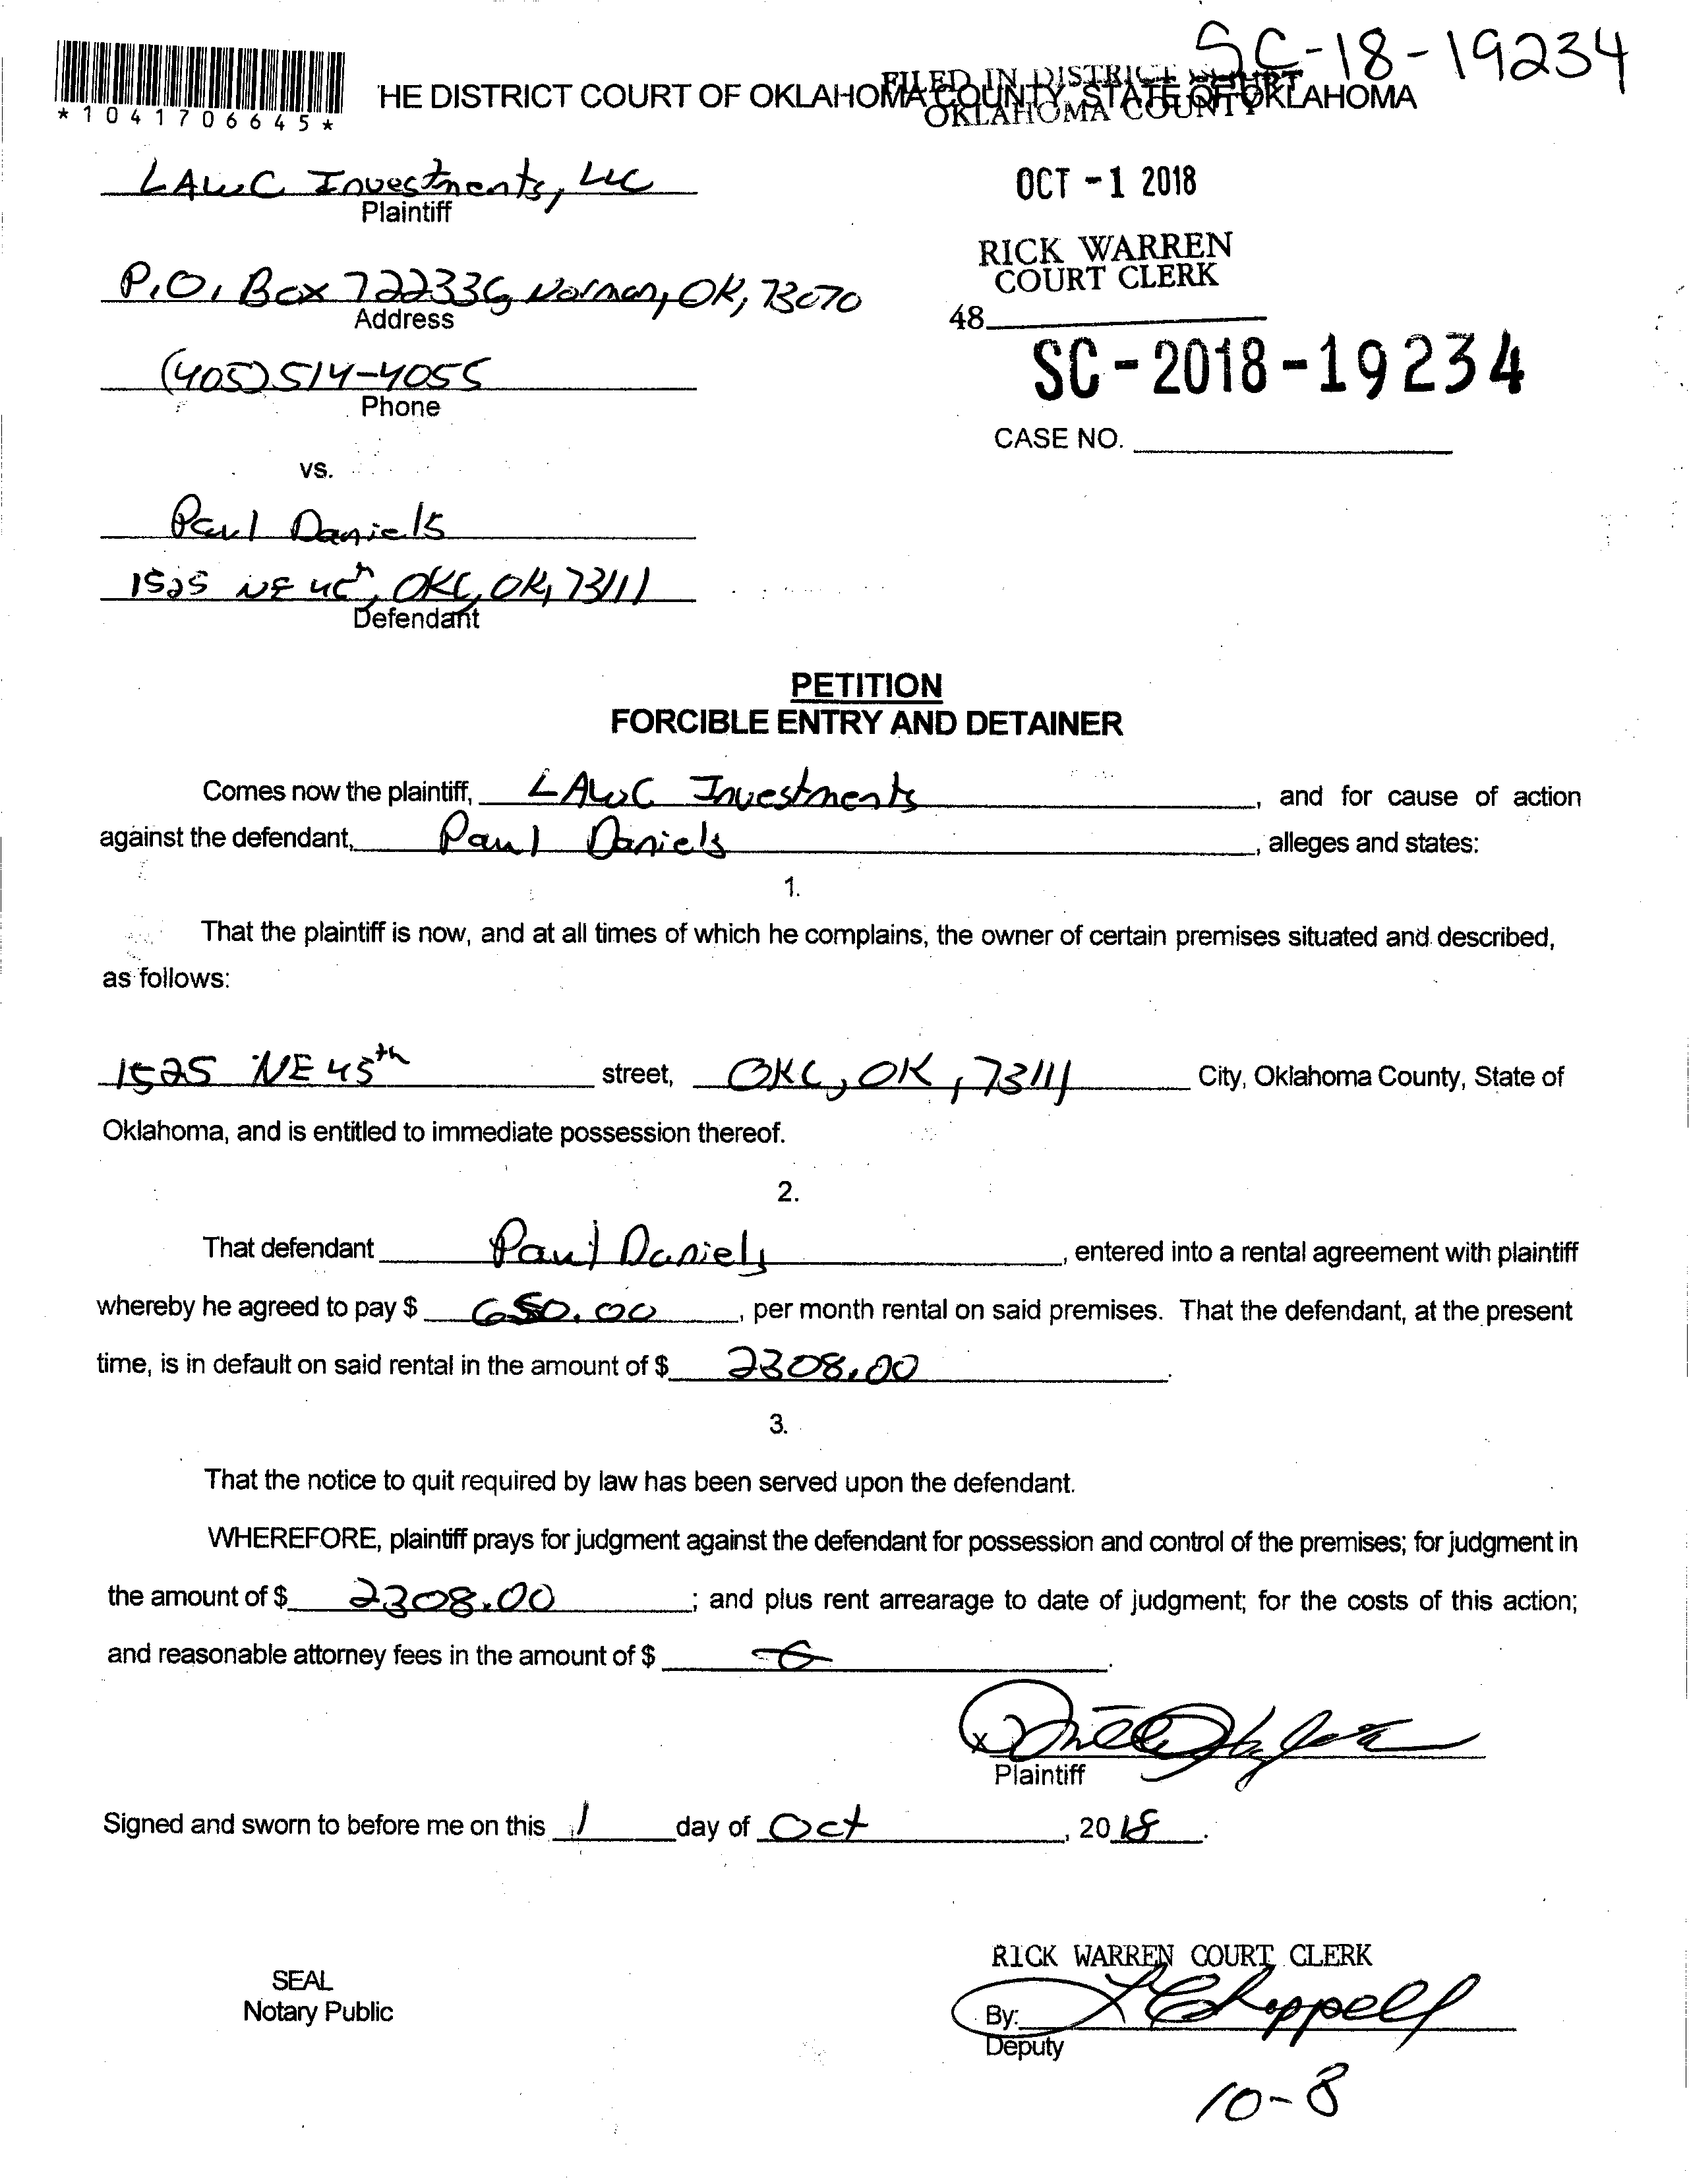 SC-18-19234
*1041706645*
HE DISTRICT COURT OF OKLAHOMA COUNTY, STATE OF OKLAHOMA
FILED IN DISTRICT COURT
OKLAHOMA COUNTY
LAWC Investments, LLC
Plaintiff
OCT -1 2018
RICK WARREN
COURT CLERK
P.O. Box 722336 Norman, OK, 73070
Address
48
(405) 514-4055
Phone
SC-2018-19234
CASE NO.
vs.
Paul Daniels
1525 NE 45th, OKC, OK, 73111
Defendant
PETITION
FORCIBLE ENTRY AND DETAINER
Comes now the plaintiff, LAWC Investments, and for cause of action
against the defendant, Paul Daniels, alleges and states:
1.
That the plaintiff is now, and at all times of which he complains, the owner of certain premises situated and described,
as follows:
1525 NE 45th street, OKC, OK, 73111 City, Oklahoma County, State of
Oklahoma, and is entitled to immediate possession thereof.
2.
That defendant Paul Daniels, entered into a rental agreement with plaintiff
whereby he agreed to pay $ 650.00, per month rental on said premises. That the defendant, at the present
time, is in default on said rental in the amount of $ 2308.00.
3.
That the notice to quit required by law has been served upon the defendant.
WHEREFORE, plaintiff prays for judgment against the defendant for possession and control of the premises; for judgment in
the amount of $ 2308.00; and plus rent arrearage to date of judgment; for the costs of this action;
and reasonable attorney fees in the amount of $
x
Plaintiff
Signed and sworn to before me on this 1 day of Oct, 2018.
RICK WARREN COURT CLERK
SEAL
Notary Public
By: Chappell
Deputy
10-8